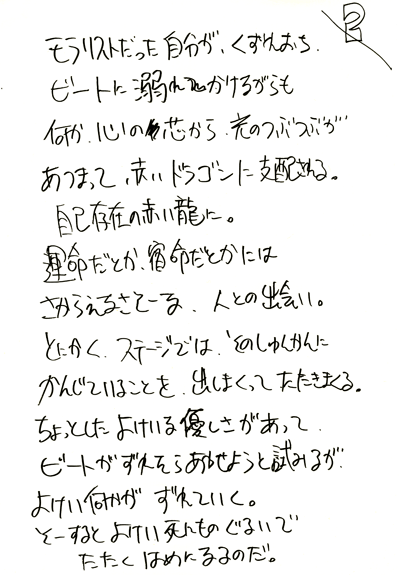 2
モラリストだった自分が、くずれおち、
ビートに溺れてかけながらも
何か、心の芯から、光のつぶつぶが
あつまって、赤いドラゴンに支配される。
自己存在の赤い龍に。
運命だとか、宿命だとかには
さからえるさてーる、人との出会い。
とにかく、ステージでは、そのしゅんかんに
かんじていることを、出しまくってたたきまくる。
ちょっとした よけいな優しさがあって、
ビートがずれそうあわせようと試みるが、
よけい何かが ずれていく。
そーすると よけい死にものぐるいで
たたくはめになるのだ。